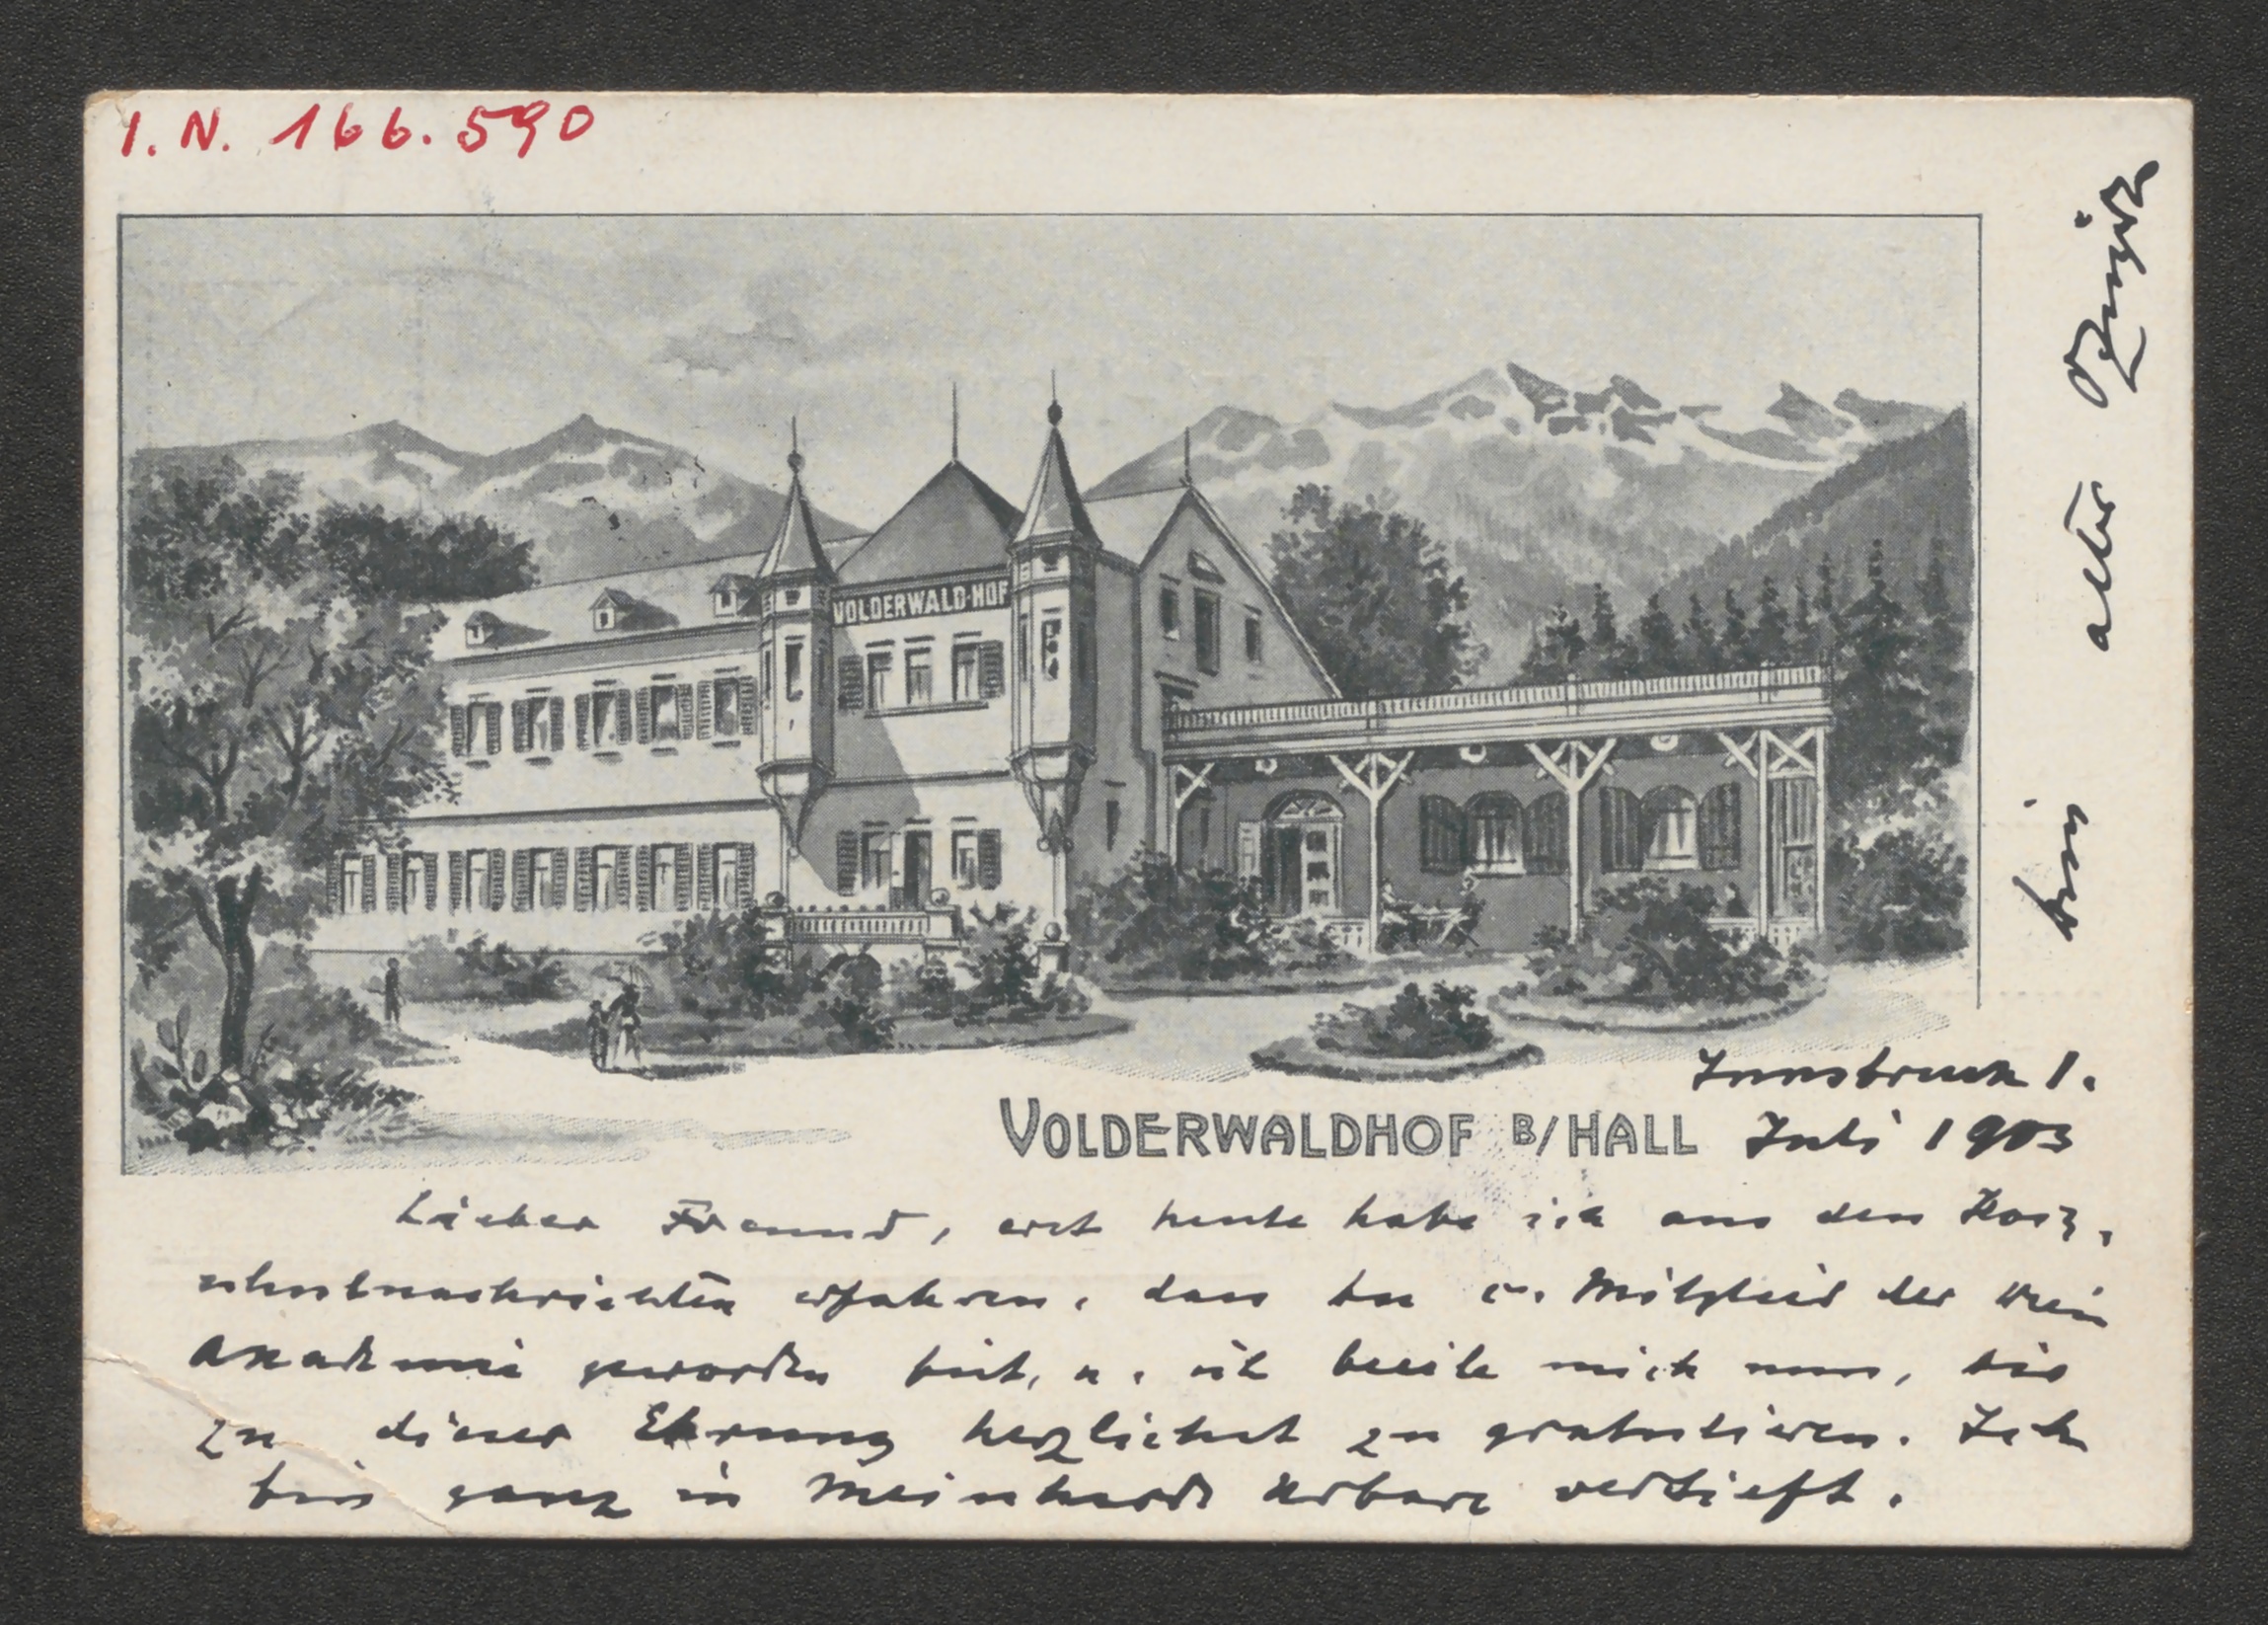 I.N. 166.590
VOLDERWALD-HOF
VOLDERWALDHOF B/HALL
Innsbruck 1.
Juli 1903
Lieber Freund, erst heute habe ich aus den Hoch-
schulnachrichten erfahren, dass du c. Mitglied der Wien
Akademie geworden bist, u. ich beeile mich nun, dir
zu dieser Ehrung herzlichst zu gratulieren. Ich
bin ganz in Meinhards Urbare vertieft.
dein alter